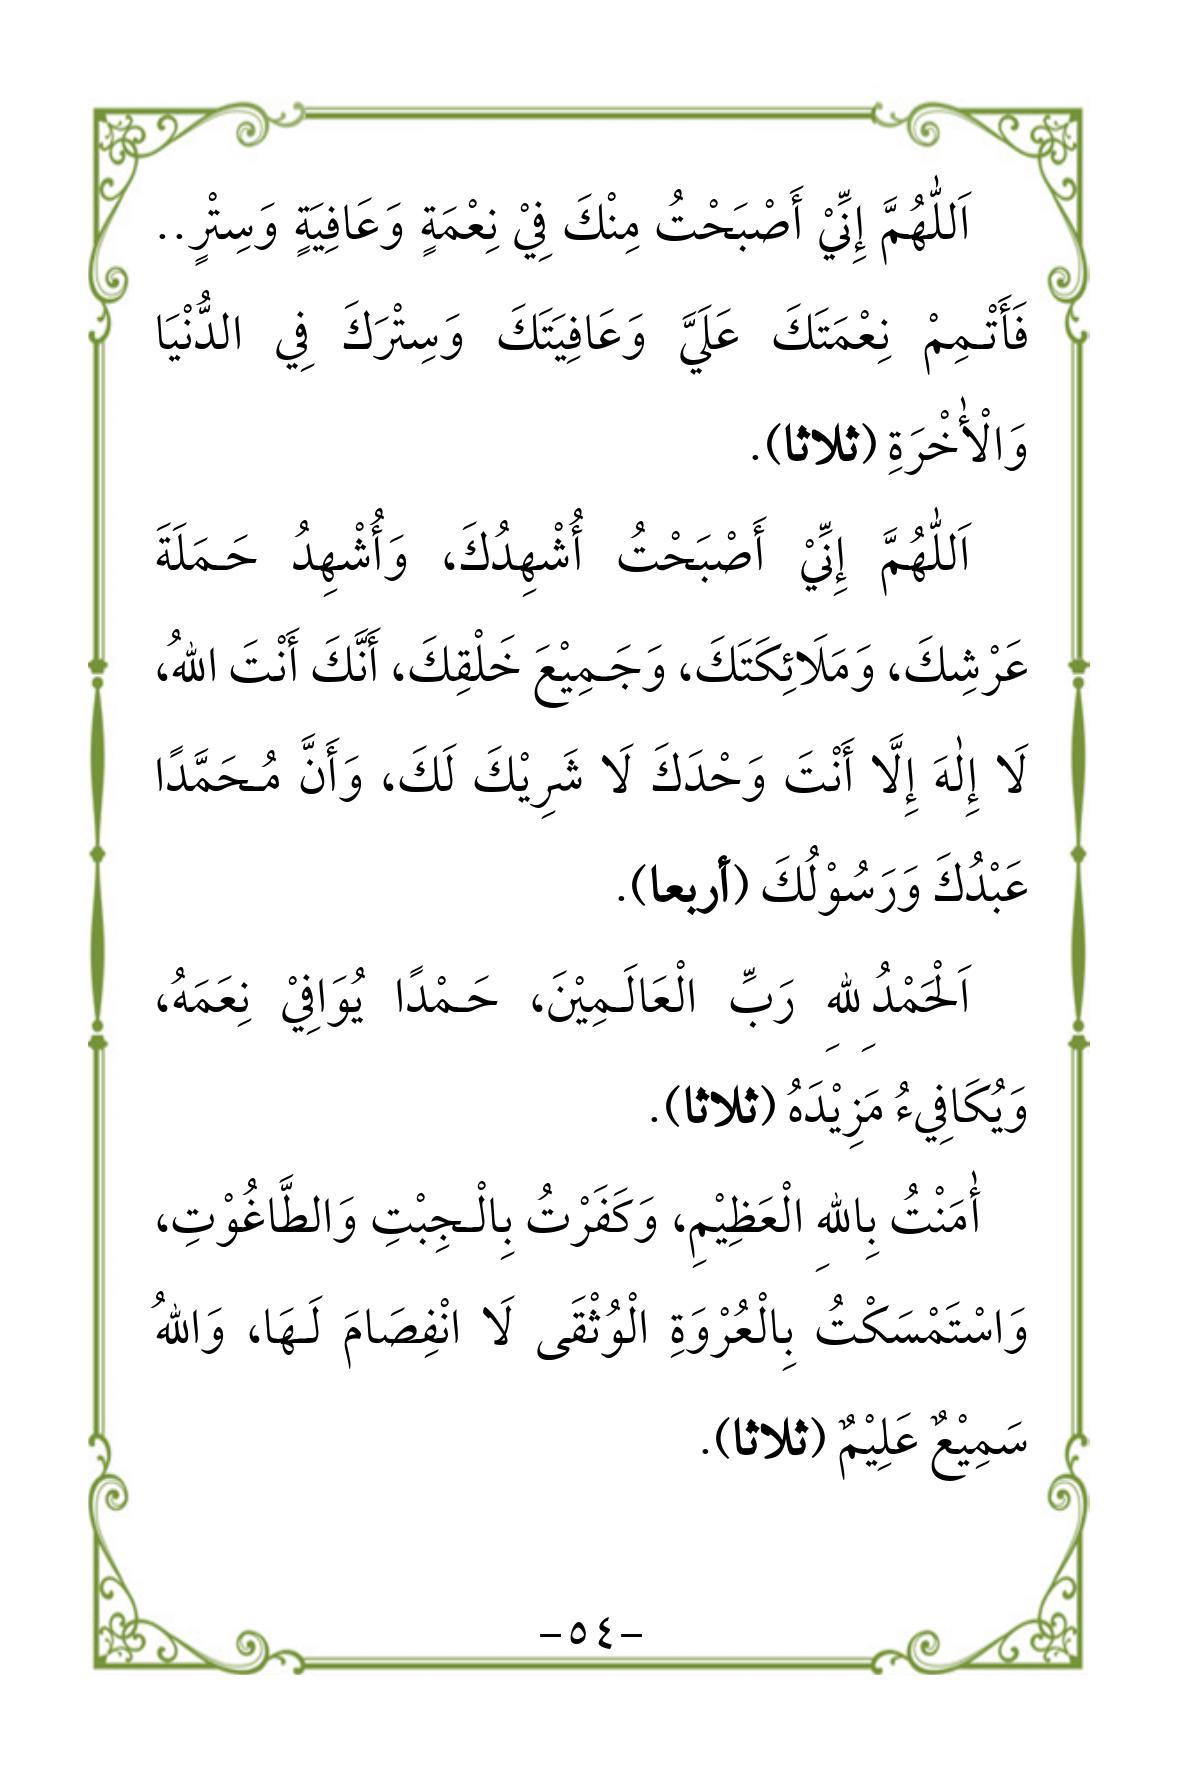 اَللّٰهُمَّ إِنِّيْ أَصْبَحْتُ مِنْكَ فِيْ نِعْمَةٍ وَعَافِيَةٍ وَسِتْرٍ..
فَأَتْـمِمْ نِعْمَتَكَ عَلَيَّ وَعَافِيَتَكَ وَسِتْرَكَ فِي الدُّنْيَا
وَالْأٰخْرَةِ (ثلاثا).
اَللّٰهُمَّ إِنِّيْ أَصْبَحْتُ أُشْهِدُكَ، وَأُشْهِدُ حَـمَلَةَ
عَرْشِكَ، وَمَلَائِكَتَكَ، وَجَـمِيْعَ خَلْقِكَ، أَنَّكَ أَنْتَ اللهُ،
لَا إِلٰهَ إِلَّا أَنْتَ وَحْدَكَ لَا شَرِيْكَ لَكَ، وَأَنَّ مُـحَمَّدًا
عَبْدُكَ وَرَسُوْلُكَ (أربعا).
اَلْحَمْدُ لِلهِ رَبِّ الْعَالَـمِيْنَ، حَـمْدًا يُوَافِيْ نِعَمَهُ،
وَيُكَافِيءُ مَزِيْدَهُ (ثلاثا).
أٰمَنْتُ بِاللهِ الْعَظِيْمِ، وَكَفَرْتُ بِالْـجِبْتِ وَالطَّاغُوْتِ،
وَاسْتَمْسَكْتُ بِالْعُرْوَةِ الْوُثْقَى لَا انْفِصَامَ لَـهَا، وَاللهُ
سَمِيْعٌ عَلِيْمٌ (ثلاثا).
–٥٤–